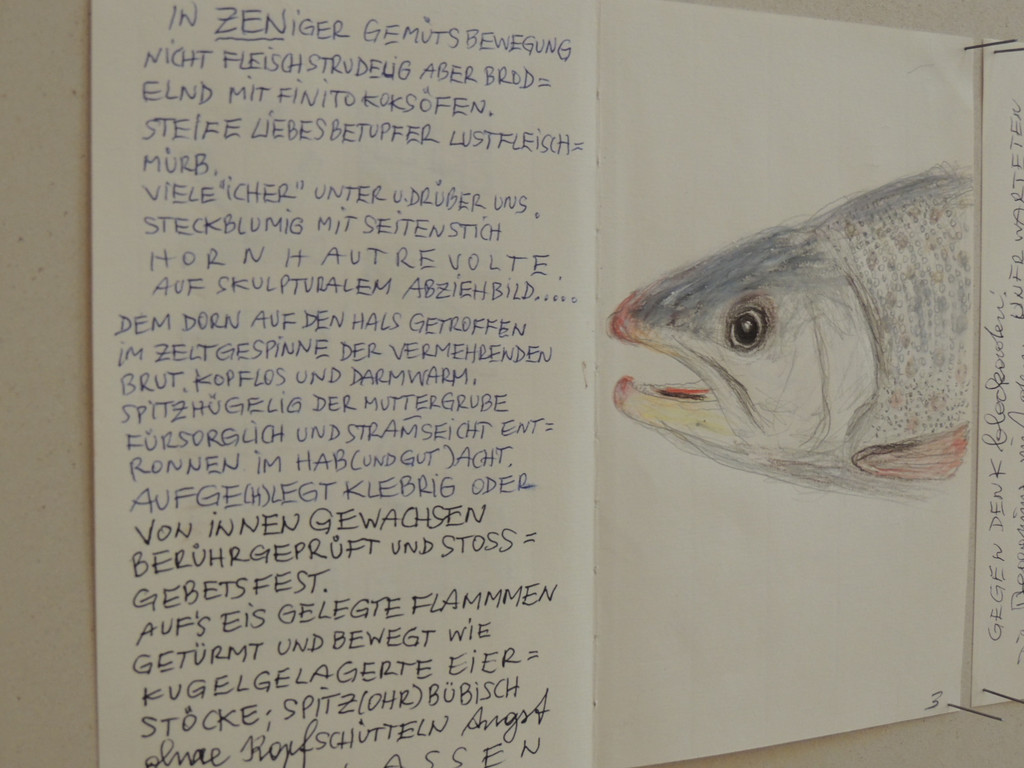 IN ZENIGER GEMÜTSBEWEGUNG
NICHT FLEISCHSTRUDELIG ABER BROD=
ELND MIT FINITO KOKSÖFEN.
STEIFE LIEBESBETUPFER LUSTFLEISCH=
MÜRB.
VIELE "ICHER" UNTER U. DRÜBER UNS.
STECKBLUMIG MIT SEITENSTICH
HORNHAUTREVOLTE.
AUF SKULPTURALEM ABZIEHBILD.....
DEM DORN AUF DEN HALS GETROFFEN
IM ZELTGESPINNE DER VERMEHRENDEN
BRUT. KOPFLOS UND DARMWARM.
SPITZHÜGELIG DER MUTTERGRUBE
FÜRSORGLICH UND STRAMSEICHT ENT=
RONNEN IM HAB(UND GUT)ACHT.
AUFGE(H)LEGT KLEBRIG ODER
VON INNEN GEWACHSEN
BERÜHRGEPRÜFT UND STOSS=
GEBETSFEST.
AUF'S EIS GELEGTE FLAMMMEN
GETÜRMT UND BEWEGT WIE
KUGELGELAGERTE EIER=
STÖCKE; SPITZ(OHR)BÜBISCH
ohne KopfSCHÜTTELN Angst
ASSEN
3
GEGEN DEN K
UNERWARTETEN